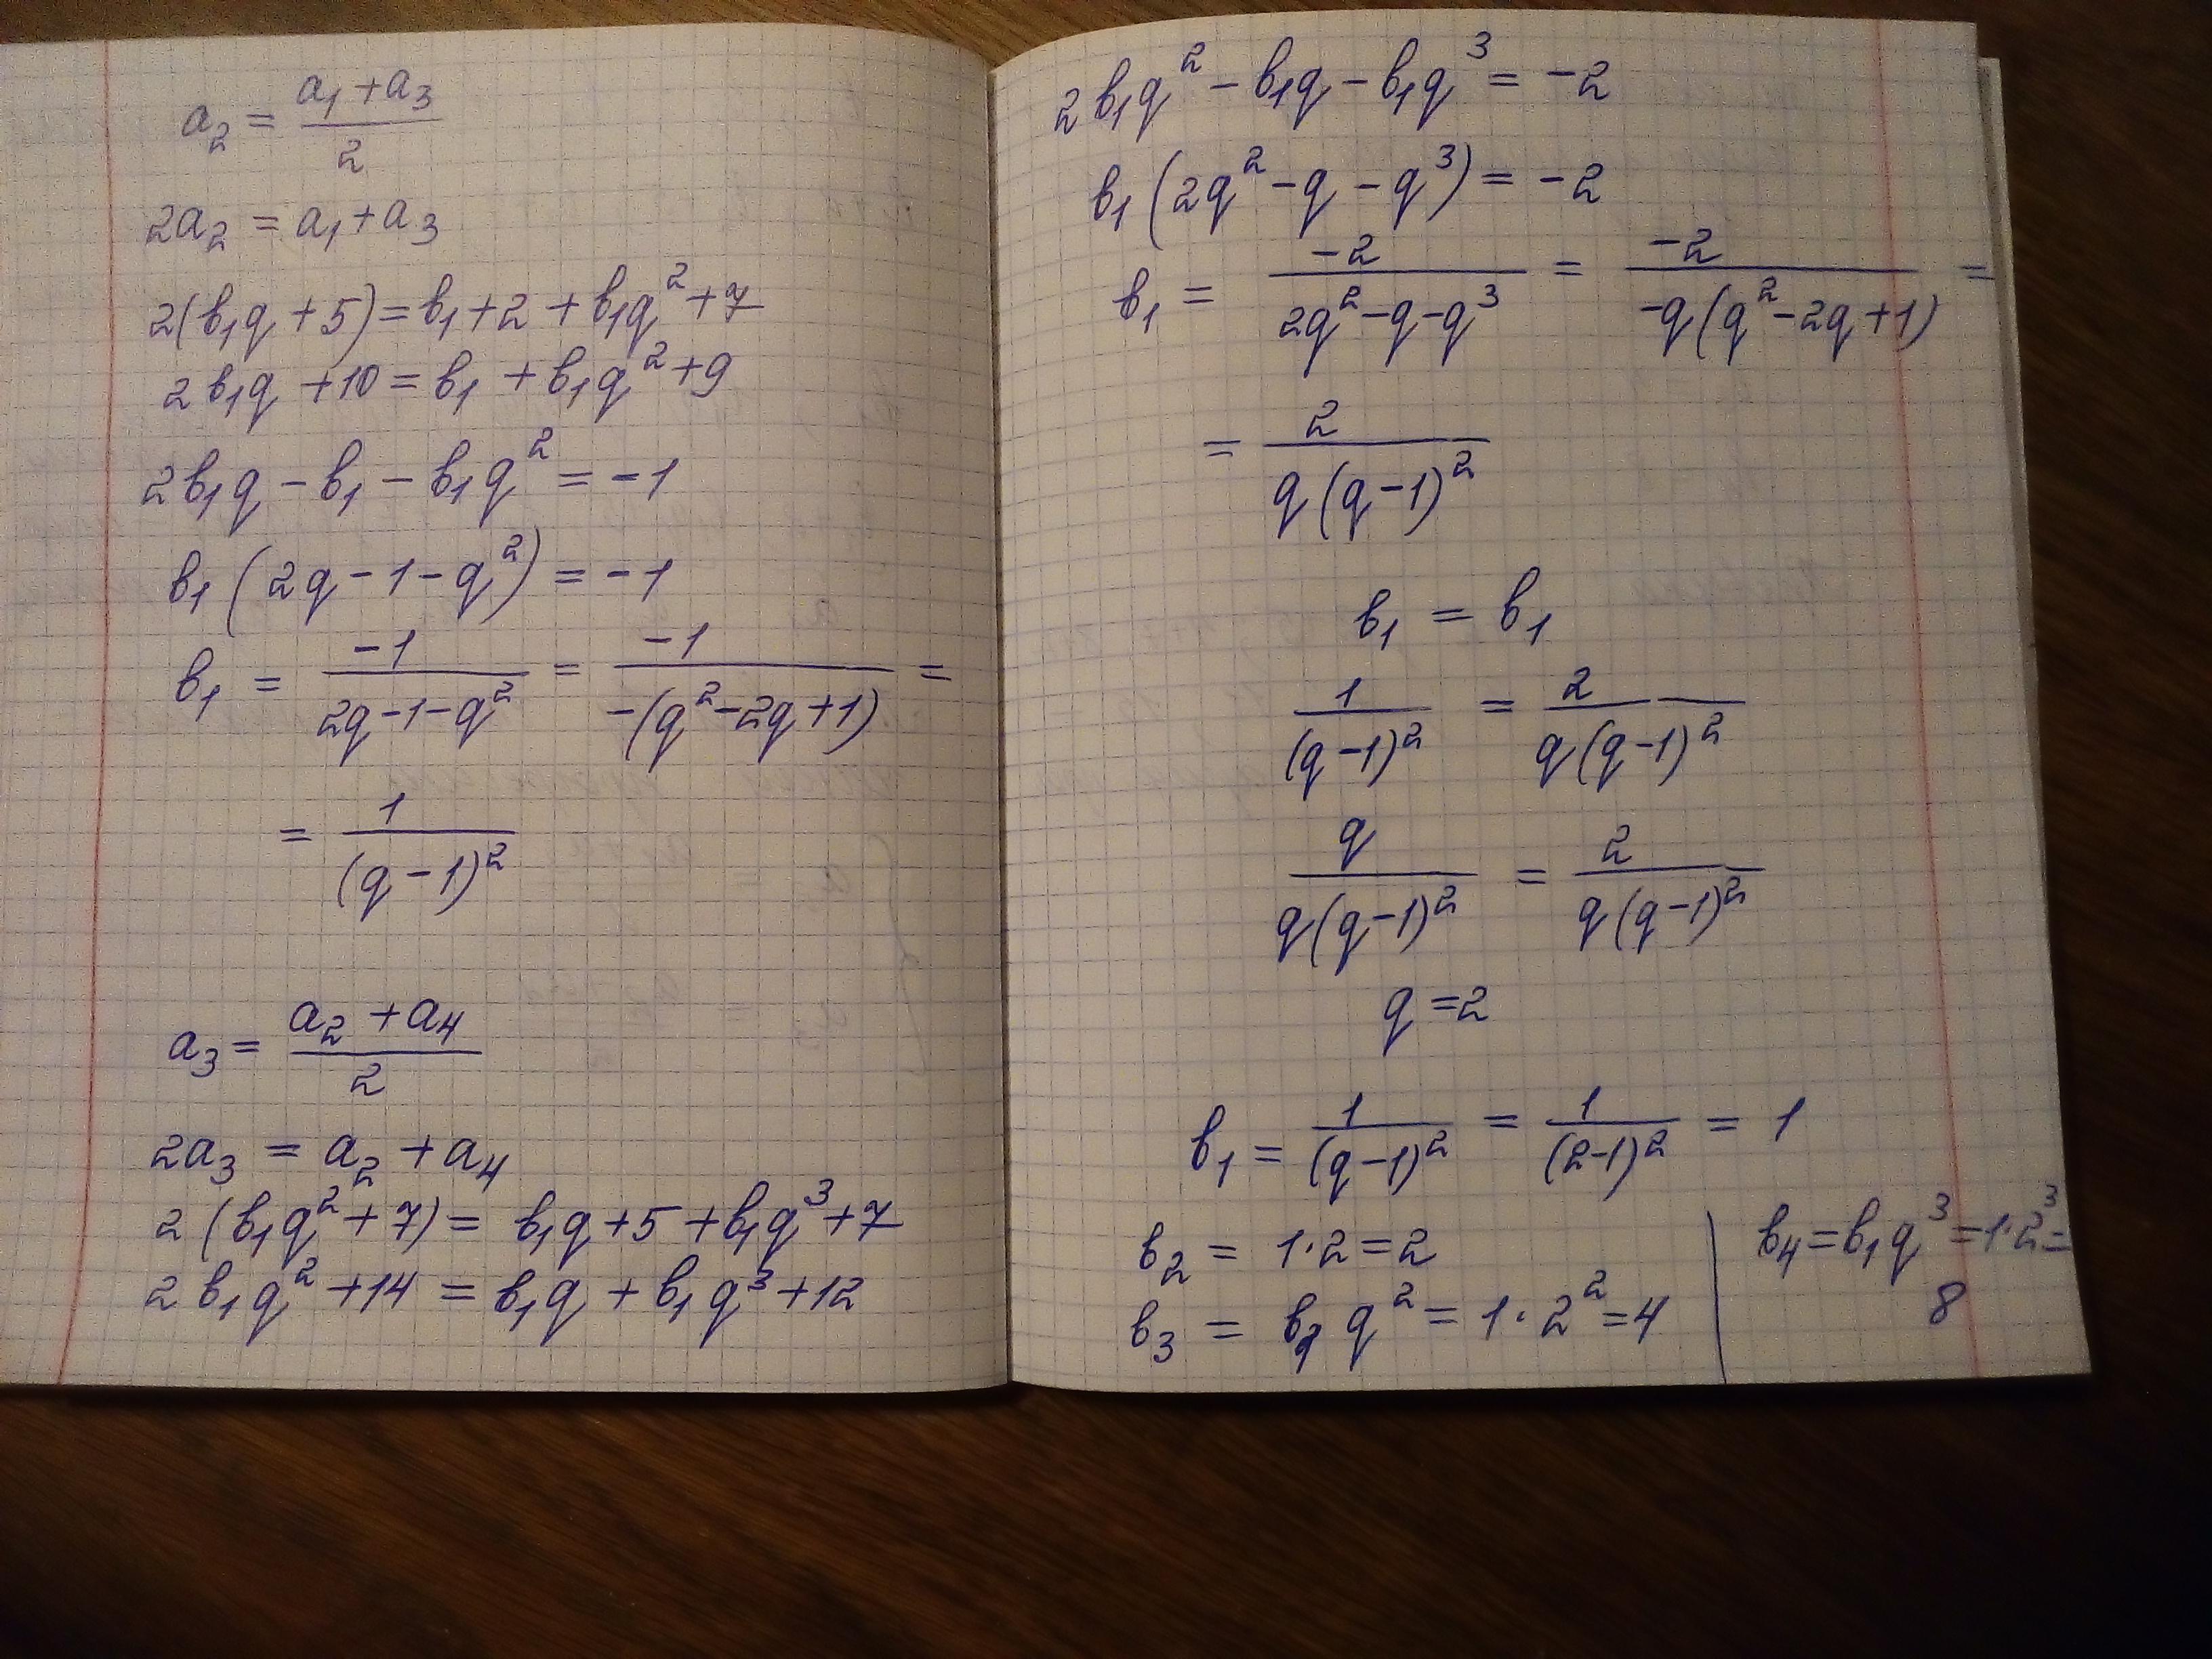 a₂ = (a₁ + a₃)/2
2a₂ = a₁ + a₃
2(b₁q + 5) = b₁ + 2 + b₁q² + 7
2b₁q + 10 = b₁ + b₁q² + 9
2b₁q - b₁ - b₁q² = -1
b₁(2q - 1 - q²) = -1
b₁ = -1/(2q - 1 - q²) = -1/(-(q² - 2q + 1)) =
= 1/(q - 1)²
a₃ = (a₂ + a₄)/2
2a₃ = a₂ + a₄
2(b₁q² + 7) = b₁q + 5 + b₁q³ + 7
2b₁q² + 14 = b₁q + b₁q³ + 12
2b₁q² - b₁q - b₁q³ = -2
b₁(2q² - q - q³) = -2
b₁ = -2/(2q² - q - q³) = -2/(-q(q² - 2q + 1)) =
= 2/(q(q - 1)²)
b₁ = b₁
1/(q - 1)² = 2/(q(q - 1)²)
q/(q(q - 1)²) = 2/(q(q - 1)²)
q = 2
b₁ = 1/(q - 1)² = 1/(2 - 1)² = 1
b₂ = 1·2 = 2
b₃ = b₁q² = 1·2² = 4
b₄ = b₁q³ = 1·2³ =
8